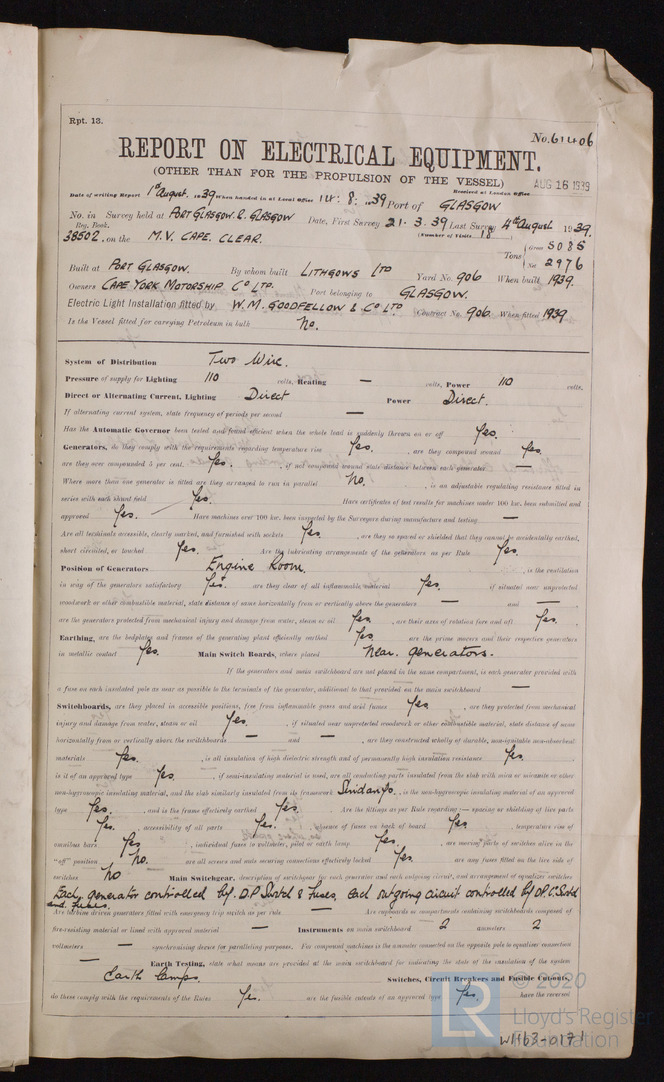 Rpt. 13.
No. 61406
REPORT ON ELECTRICAL EQUIPMENT.
(OTHER THAN FOR THE PROPULSION OF THE VESSEL)
AUG 16 1939
Date of writing Report 1st August, 1939 When handed in at Local Office 14. 8. 1939 Port of GLASGOW Received at London Office
No. in Survey held at PORT GLASGOW & GLASGOW Date, First Survey 21. 3. 39 Last Survey 4th August 1939.
Reg. Book. (Number of Visits 18)
38502. on the M.V. CAPE CLEAR. Tons { Gross 5085
Net 2976
Built at PORT GLASGOW. By whom built LITHGOWS LTD Yard No. 906 When built 1939.
Owners CAPE YORK MOTORSHIP CO LTD. Port belonging to GLASGOW.
Electric Light Installation fitted by W. M. GOODFELLOW & CO LTD Contract No. 906. When fitted 1939
Is the Vessel fitted for carrying Petroleum in bulk No.
System of Distribution Two Wire.
Pressure of supply for Lighting 110 volts, Heating — volts, Power 110 volts.
Direct or Alternating Current, Lighting Direct Power Direct.
If alternating current system, state frequency of periods per second —
Has the Automatic Governor been tested and found efficient when the whole load is suddenly thrown on or off Yes.
Generators, do they comply with the requirements regarding temperature rise Yes. , are they compound wound Yes.
are they over compounded 5 per cent. Yes. , if not compound wound state distance between each generator —
Where more than one generator is fitted are they arranged to run in parallel No. , is an adjustable regulating resistance fitted in
series with each shunt field Yes. Have certificates of test results for machines under 100 kw. been submitted and
approved Yes. Have machines over 100 kw. been inspected by the Surveyors during manufacture and testing —
Are all terminals accessible, clearly marked, and furnished with sockets Yes. , are they so spaced or shielded that they cannot be accidentally earthed,
short circuited, or touched Yes. Are the lubricating arrangements of the generators as per Rule Yes.
Position of Generators Engine Room. , is the ventilation
in way of the generators satisfactory Yes. are they clear of all inflammable material Yes. if situated near unprotected
woodwork or other combustible material, state distance of same horizontally from or vertically above the generators — and —
are the generators protected from mechanical injury and damage from water, steam or oil Yes. , are their axes of rotation fore and aft Yes.
Earthing, are the bedplates and frames of the generating plant efficiently earthed Yes. are the prime movers and their respective generators
in metallic contact Yes. Main Switch Boards, where placed Near generators.
If the generators and main switchboard are not placed in the same compartment, is each generator provided with
a fuse on each insulated pole as near as possible to the terminals of the generator, additional to that provided on the main switchboard —
Switchboards, are they placed in accessible positions, free from inflammable gases and acid fumes Yes. , are they protected from mechanical
injury and damage from water, steam or oil Yes. , if situated near unprotected woodwork or other combustible material, state distance of same
horizontally from or vertically above the switchboards — and — , are they constructed wholly of durable, non-ignitable non-absorbent
materials Yes. , is all insulation of high dielectric strength and of permanently high insulation resistance Yes.
is it of an approved type Yes. , if semi-insulating material is used, are all conducting parts insulated from the slab with mica or micanite or other
non-hygroscopic insulating material, and the slab similarly insulated from its framework Sindanyo. , is the non-hygroscopic insulating material of an approved
type Yes. , and is the frame effectively earthed Yes. Are the fittings as per Rule regarding :— spacing or shielding of live parts
Yes. , accessibility of all parts Yes. , absence of fuses on back of board Yes. , temperature rise of
omnibus bars Yes , individual fuses to voltmeter, pilot or earth lamp Yes. , are moving parts of switches alive in the
"off" position No. are all screws and nuts securing connections effectively locked Yes. are any fuses fitted on the live side of
switches No Main Switchgear, description of switchgear for each generator and each outgoing circuit, and arrangement of equaliser switches
Each generator controlled by D.P Switch & fuses, each outgoing circuit controlled by DP. C. Switch
and fuses.
Are turbine driven generators fitted with emergency trip switch as per rule — Are cupboards or compartments containing switchboards composed of
fire-resisting material or lined with approved material — Instruments on main switchboard 2 ammeters 2
voltmeters — synchronising device for paralleling purposes. For compound machines is the ammeter connected on the opposite pole to equaliser connection
— Earth Testing, state what means are provided at the main switchboard for indicating the state of the insulation of the system
Earth lamps. Switches, Circuit Breakers and Fusible Cutouts,
do these comply with the requirements of the Rules Yes. are the fusible cutouts of an approved type Yes. have the reversed
© 2020
LR
Lloyd's Register
Foundation
W1163-0171